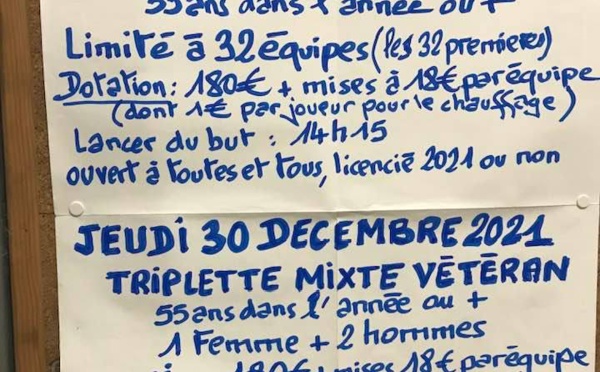 55 ans dans l'année ou +
Limité à 32 équipes (les 32 premières)
Dotation : 180€ + mises à 18€ par équipe
(dont 1€ par joueur pour le chauffage)
Lancer du but : 14h15
ouvert à toutes et tous, licencié 2021 ou non
JEUDI 30 DECEMBRE 2021
TRIPLETTE MIXTE VÉTÉRAN
55 ans dans l'année ou +
1 Femme + 2 hommes
180€ + mises 18€ par équipe